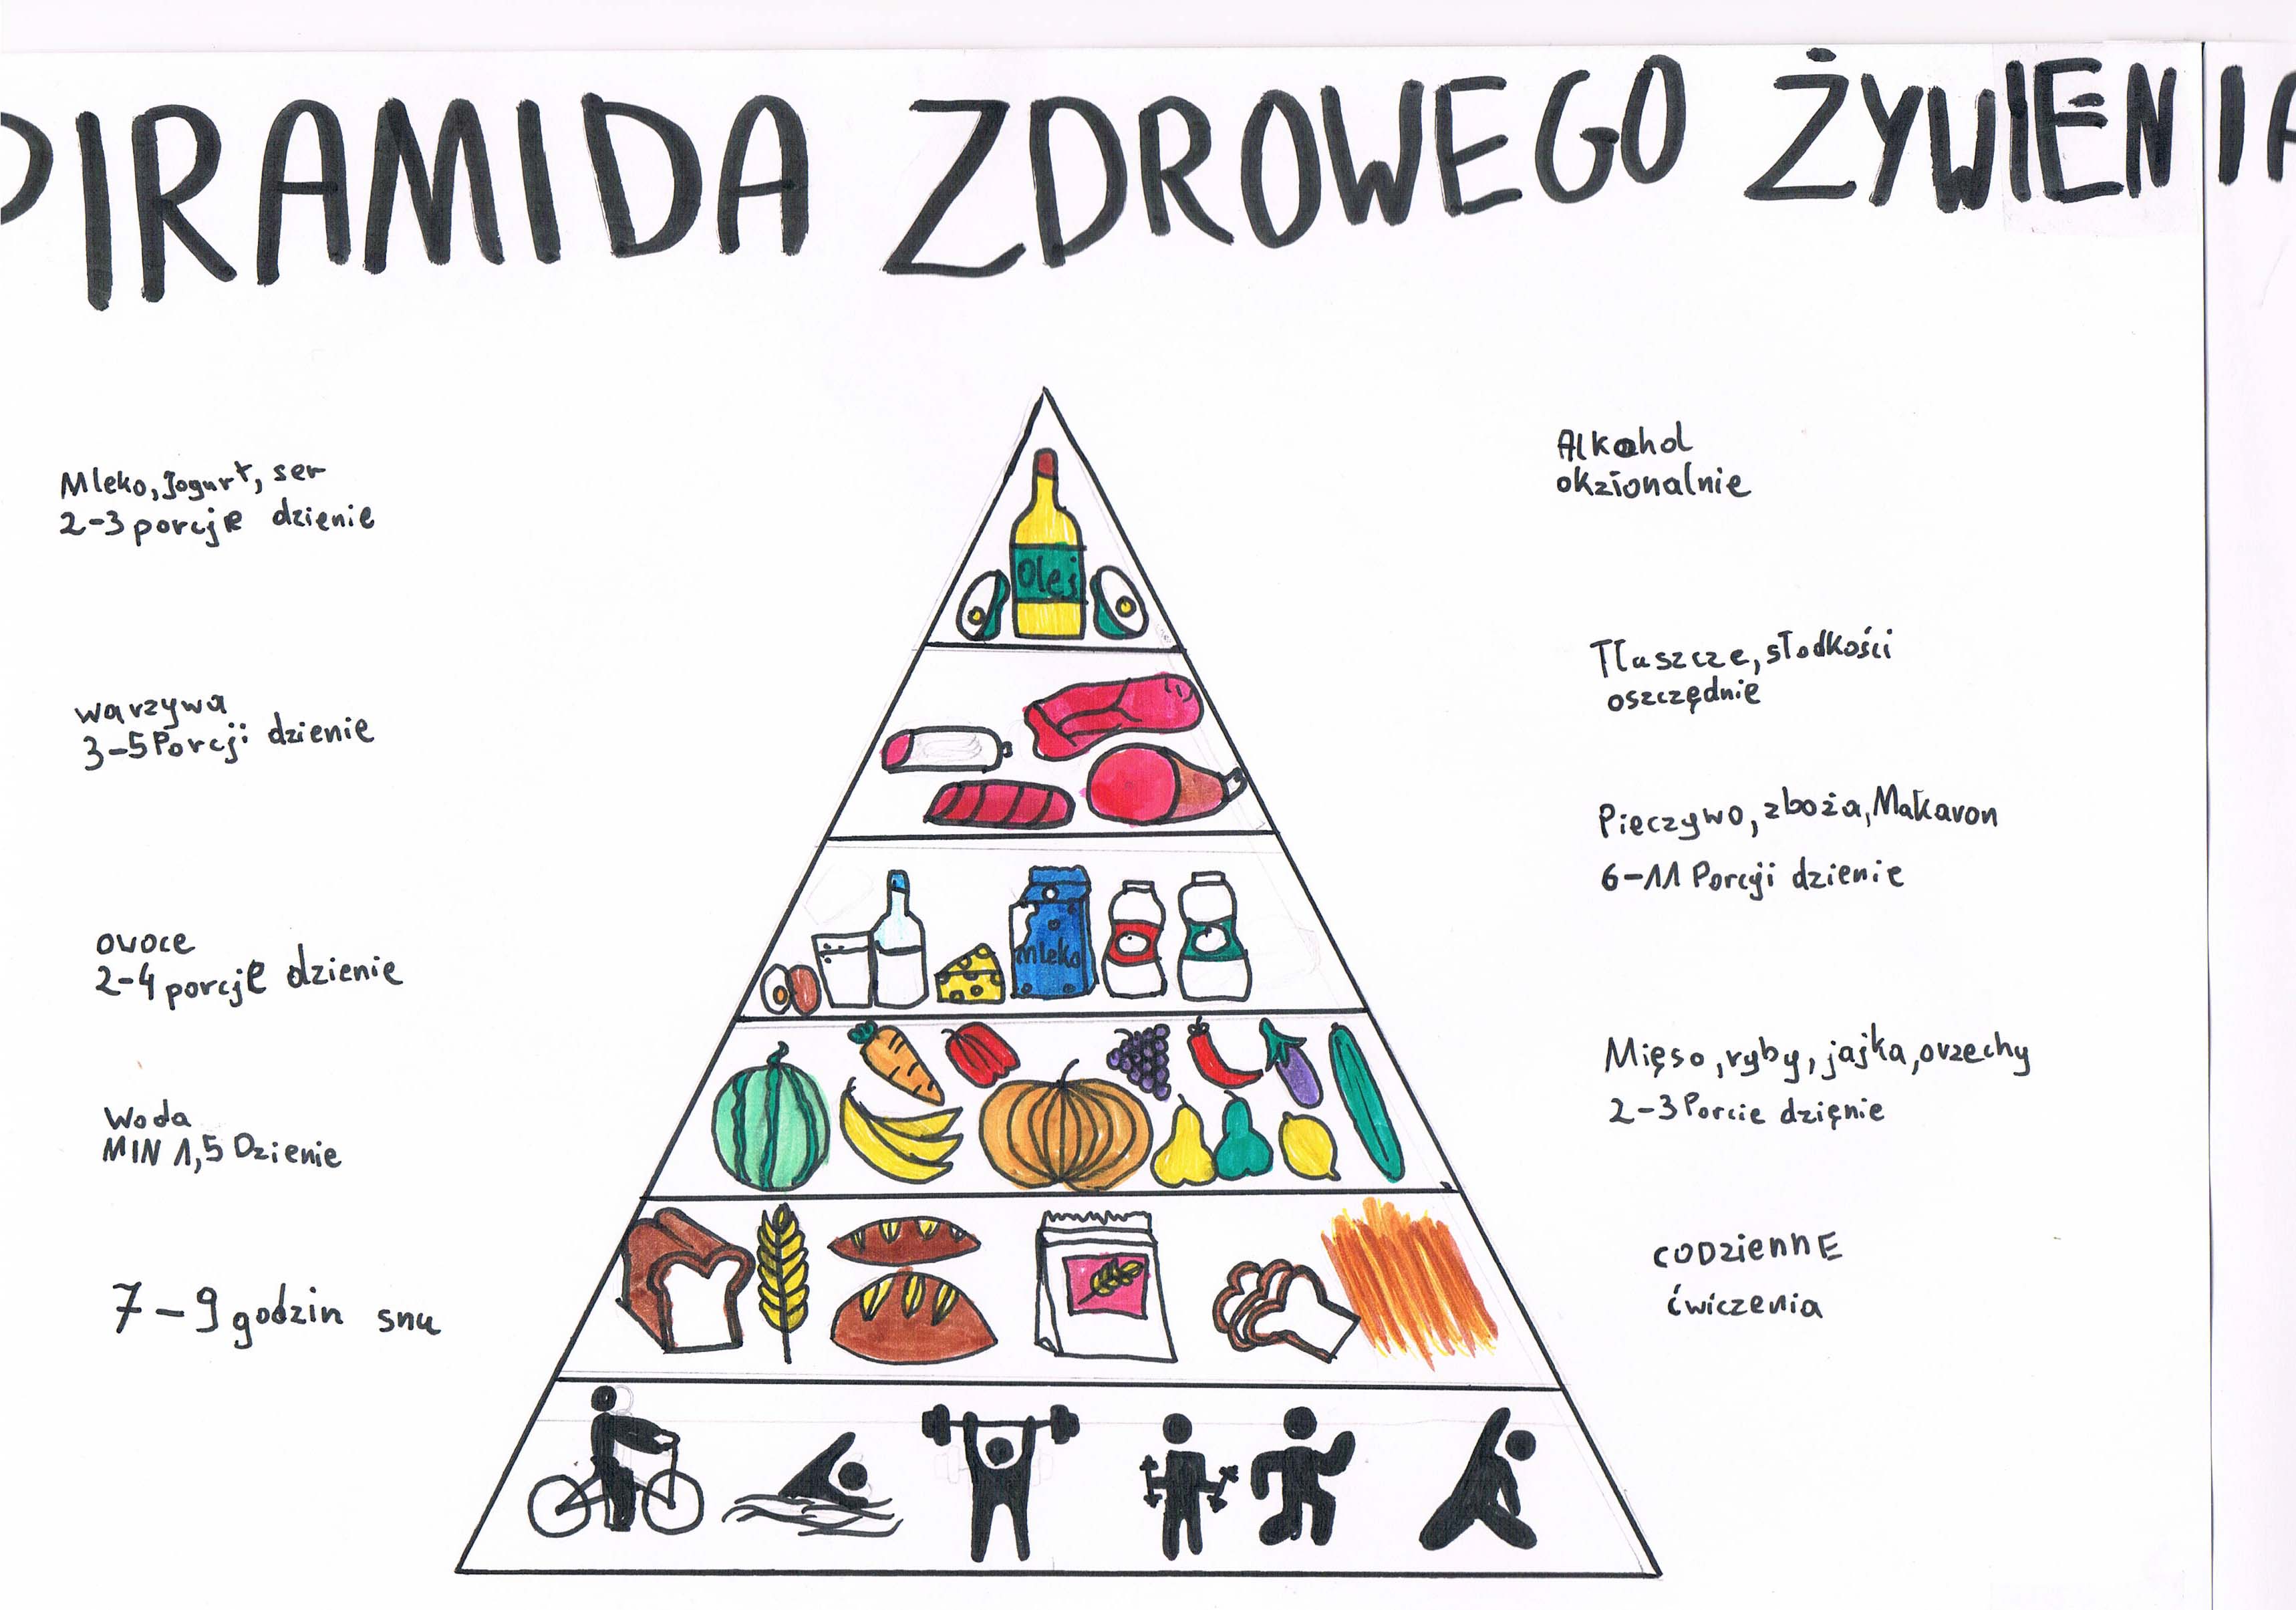 PIRAMIDA ZDROWEGO ŻYWIENIA
Mleko, Jogurt, ser
2-3 porcje dzienie
warzywa
3-5 Porcji dzienie
ovoce
2-4 porcje dzienie
Woda
MIN 1,5 Dzienie
7-9 godzin snu
Olej
Mleko
Alkohol
okzionalnie
Tłuszcze, słodkości
oszczędnie
Pieczywo, zboża, Makaron
6-11 Porcji dzienie
Mięso, ryby, jajka, orzechy
2-3 Porcie dzięnie
CODziennE
ćwiczenia